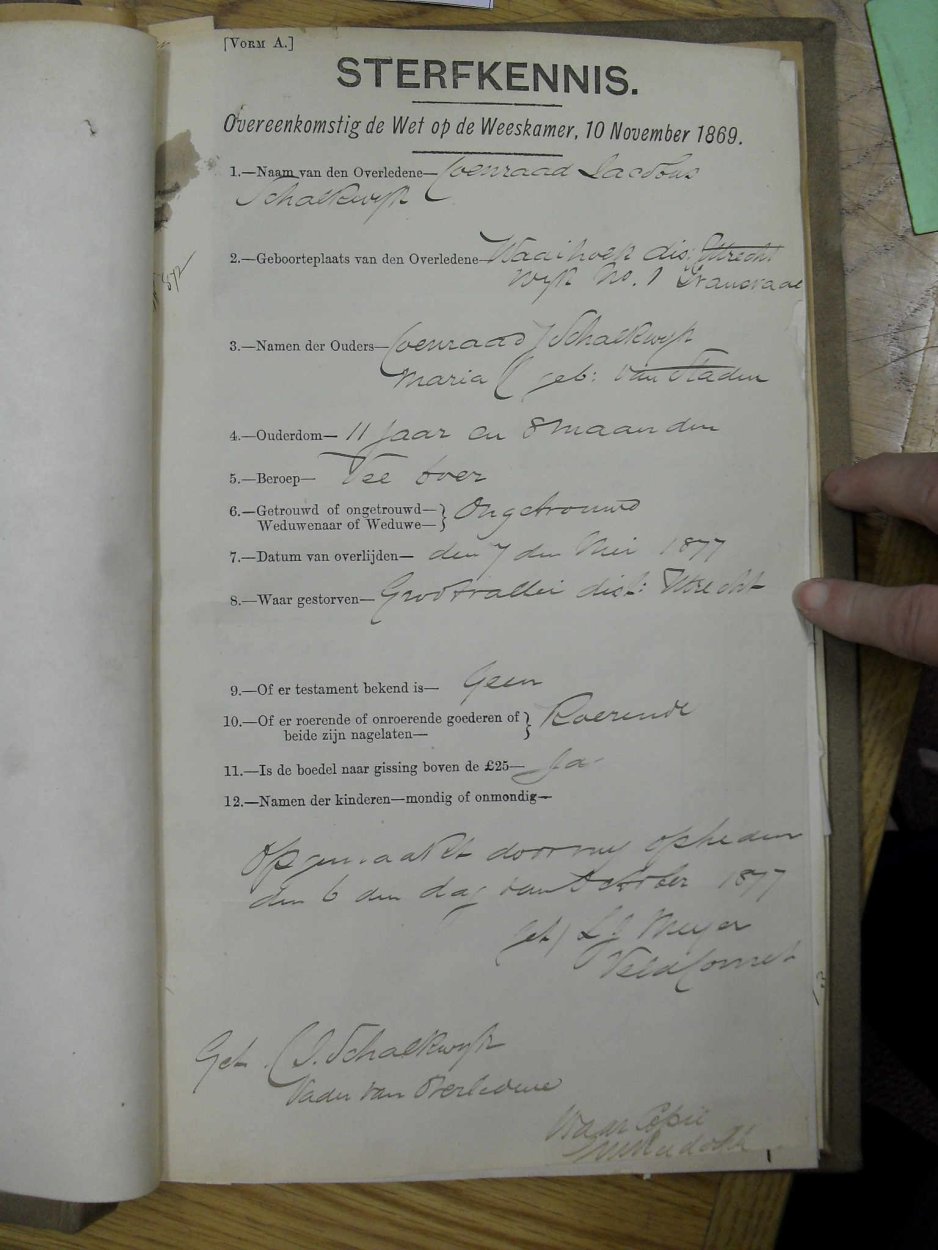 [VORM A.]
STERFKENNIS.
Overeenkomstig de Wet op de Weeskamer, 10 November 1869.
1.—Naam van den Overledene— Coenraad Jacobus
Schalkwyk
2.—Geboorteplaats van den Overledene— Waaihoek dis: Utrecht
Wyk No. 1 Transvaal
3.—Namen der Ouders— Coenraad J Schalkwyk
Maria C geb: van Staden
4.—Ouderdom— 11 Jaar en 8 maanden
5.—Beroep— Vee boer
6.—Getrouwd of ongetrouwd— } Ongetrouwd
Weduwenaar of Weduwe—
7.—Datum van overlijden— den 7 den Mei 1877
8.—Waar gestorven— Grootvallei dist: Utrecht
9.—Of er testament bekend is— Geen
10.—Of er roerende of onroerende goederen of } Roerende
beide zijn nagelaten—
11.—Is de boedel naar gissing boven de £25— Ja
12.—Namen der kinderen—mondig of onmondig—
Opgemaakt door my op heden
den 6 den dag van October 1877
get) L J Meyer
Veld Cornet
Get. C J. Schalkwyk
Vader van Overledene
Waar Copie